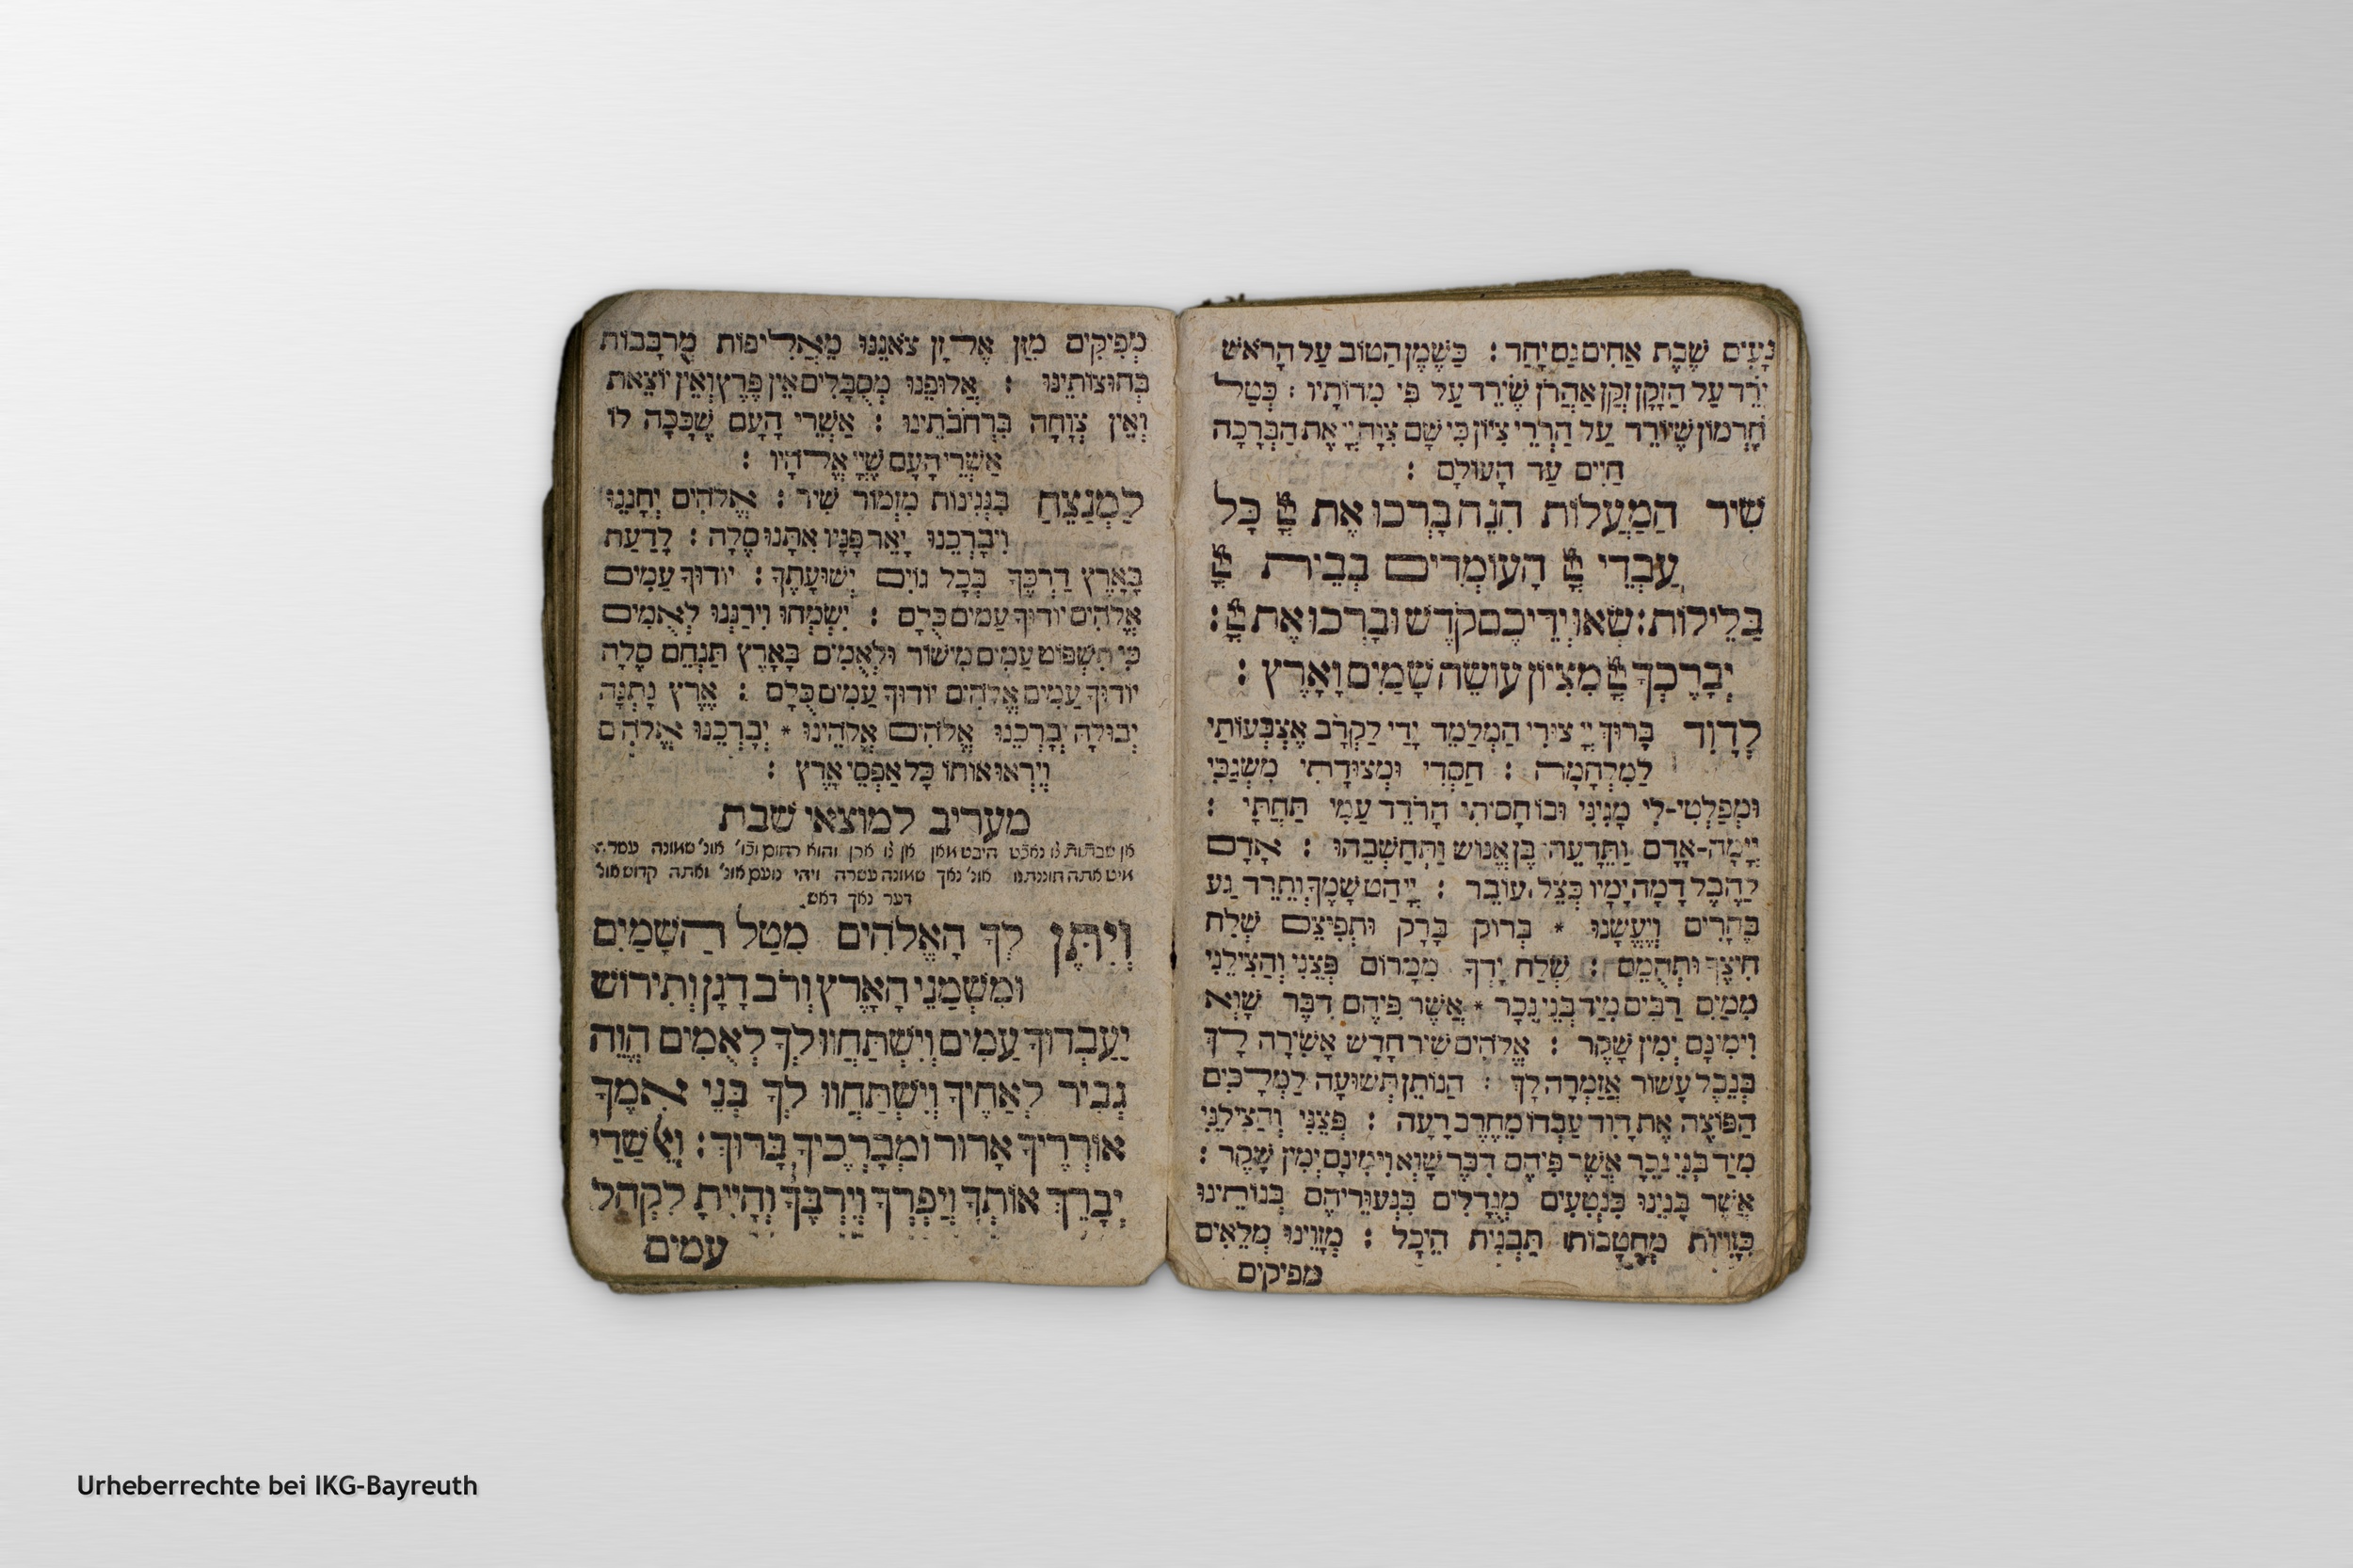 נָעִים שֶׁבֶת אַחִים גַּם יָחַד : כַּשֶּׁמֶן הַטּוֹב עַל הָרֹאשׁ
יֹרֵד עַל הַזָּקָן זְקַן אַהֲרֹן שֶׁיֹּרֵד עַל פִּי מִדּוֹתָיו : כְּטַל
חֶרְמוֹן שֶׁיּוֹרֵד עַל הַרְרֵי צִיּוֹן כִּי שָׁם צִוָּה יְיָ אֶת הַבְּרָכָה
חַיִּים עַד הָעוֹלָם :
שִׁיר הַמַּעֲלוֹת הִנֵּה בָּרְכוּ אֶת יְיָ כָּל
עַבְדֵי יְיָ הָעוֹמְדִים בְּבֵית יְיָ
בַּלֵּילוֹת : שְׂאוּ יְדֵיכֶם קֹדֶשׁ וּבָרְכוּ אֶת יְיָ :
יְבָרֶכְךָ יְיָ מִצִּיּוֹן עוֹשֵׂה שָׁמַיִם וָאָרֶץ :
לְדָוִד בָּרוּךְ יְיָ צוּרִי הַמְלַמֵּד יָדַי לַקְרָב אֶצְבְּעוֹתַי
לַמִּלְחָמָה : חַסְדִּי וּמְצוּדָתִי מִשְׂגַּבִּי
וּמְפַלְטִי-לִי מָגִנִּי וּבוֹ חָסִיתִי הָרֹדֵד עַמִּי תַּחְתָּי :
יְיָ מָה-אָדָם וַתֵּדָעֵהוּ בֶּן אֱנוֹשׁ וַתְּחַשְּׁבֵהוּ : אָדָם
לַהֶבֶל דָּמָה יָמָיו כְּצֵל עוֹבֵר : יְיָ הַט שָׁמֶיךָ וְתֵרֵד גַּע
בֶּהָרִים וְיֶעֱשָׁנוּ * בְּרוֹק בָּרָק וּתְפִיצֵם שְׁלַח
חִצֶּיךָ וּתְהֻמֵּם : שְׁלַח יָדֶךָ מִמָּרוֹם פְּצֵנִי וְהַצִּילֵנִי
מִמַּיִם רַבִּים מִיַּד בְּנֵי נֵכָר * אֲשֶׁר פִּיהֶם דִּבֶּר שָׁוְא
וִימִינָם יְמִין שָׁקֶר : אֱלֹהִים שִׁיר חָדָשׁ אָשִׁירָה לָּךְ
בְּנֵבֶל עָשׂוֹר אֲזַמְּרָה לָּךְ : הַנּוֹתֵן תְּשׁוּעָה לַמְּלָכִים
הַפּוֹצֶה אֶת דָּוִד עַבְדּוֹ מֵחֶרֶב רָעָה : פְּצֵנִי וְהַצִּילֵנִי
מִיַּד בְּנֵי נֵכָר אֲשֶׁר פִּיהֶם דִּבֶּר שָׁוְא וִימִינָם יְמִין שָׁקֶר :
אֲשֶׁר בָּנֵינוּ כִּנְטִעִים מְגֻדָּלִים בִּנְעוּרֵיהֶם בְּנוֹתֵינוּ
כְּזָוִיּוֹת מְחֻטָּבוֹת תַּבְנִית הֵיכָל : מְזָוֵינוּ מְלֵאִים
מפיקים
מְפִיקִים מִזַּן אֶל זַן צֹאנֵנוּ מַאֲלִיפוֹת מְרֻבָּבוֹת
בְּחוּצוֹתֵינוּ : אַלּוּפֵנוּ מְסֻבָּלִים אֵין פֶּרֶץ וְאֵין יוֹצֵאת
וְאֵין צְוָחָה בִּרְחֹבֹתֵינוּ : אַשְׁרֵי הָעָם שֶׁכָּכָה לּוֹ
אַשְׁרֵי הָעָם שֶׁיְיָ אֱלֹהָיו :
לַמְנַצֵּחַ בִּנְגִינוֹת מִזְמוֹר שִׁיר : אֱלֹהִים יְחָנֵּנוּ
וִיבָרְכֵנוּ יָאֵר פָּנָיו אִתָּנוּ סֶלָה : לָדַעַת
בָּאָרֶץ דַּרְכֶּךָ בְּכָל גּוֹיִם יְשׁוּעָתֶךָ : יוֹדוּךָ עַמִּים
אֱלֹהִים יוֹדוּךָ עַמִּים כֻּלָּם : יִשְׂמְחוּ וִירַנְּנוּ לְאֻמִּים
כִּי תִשְׁפּוֹט עַמִּים מִישׁוֹר וּלְאֻמִּים בָּאָרֶץ תַּנְחֵם סֶלָה
יוֹדוּךָ עַמִּים אֱלֹהִים יוֹדוּךָ עַמִּים כֻּלָּם : אֶרֶץ נָתְנָה
יְבוּלָהּ יְבָרְכֵנוּ אֱלֹהִים אֱלֹהֵינוּ * יְבָרְכֵנוּ אֱלֹהִים
וְיִרְאוּ אוֹתוֹ כָּל אַפְסֵי אָרֶץ :
מעריב למוצאי שבת
היבט מאן והוא רחום אונ' שמונה עשרה
אתה חוננתנו אונ' נאך שמונה עשרה ויהי נועם אונ' ואתה קדוש אונ'
דער נאך דאש
וְיִתֶּן לְךָ הָאֱלֹהִים מִטַּל הַשָּׁמַיִם
וּמִשְׁמַנֵּי הָאָרֶץ וְרֹב דָּגָן וְתִירוֹשׁ
יַעַבְדוּךָ עַמִּים וְיִשְׁתַּחֲווּ לְךָ לְאֻמִּים הֱוֵה
גְבִיר לְאַחֶיךָ וְיִשְׁתַּחֲווּ לְךָ בְּנֵי אִמֶּךָ
אוֹרְרֶיךָ אָרוּר וּמְבָרְכֶיךָ בָּרוּךְ : וְאֵל שַׁדַּי
יְבָרֵךְ אוֹתְךָ וְיַפְרְךָ וְיַרְבֶּךָ וְהָיִיתָ לִקְהַל
עמים
Urheberrechte bei IKG-Bayreuth